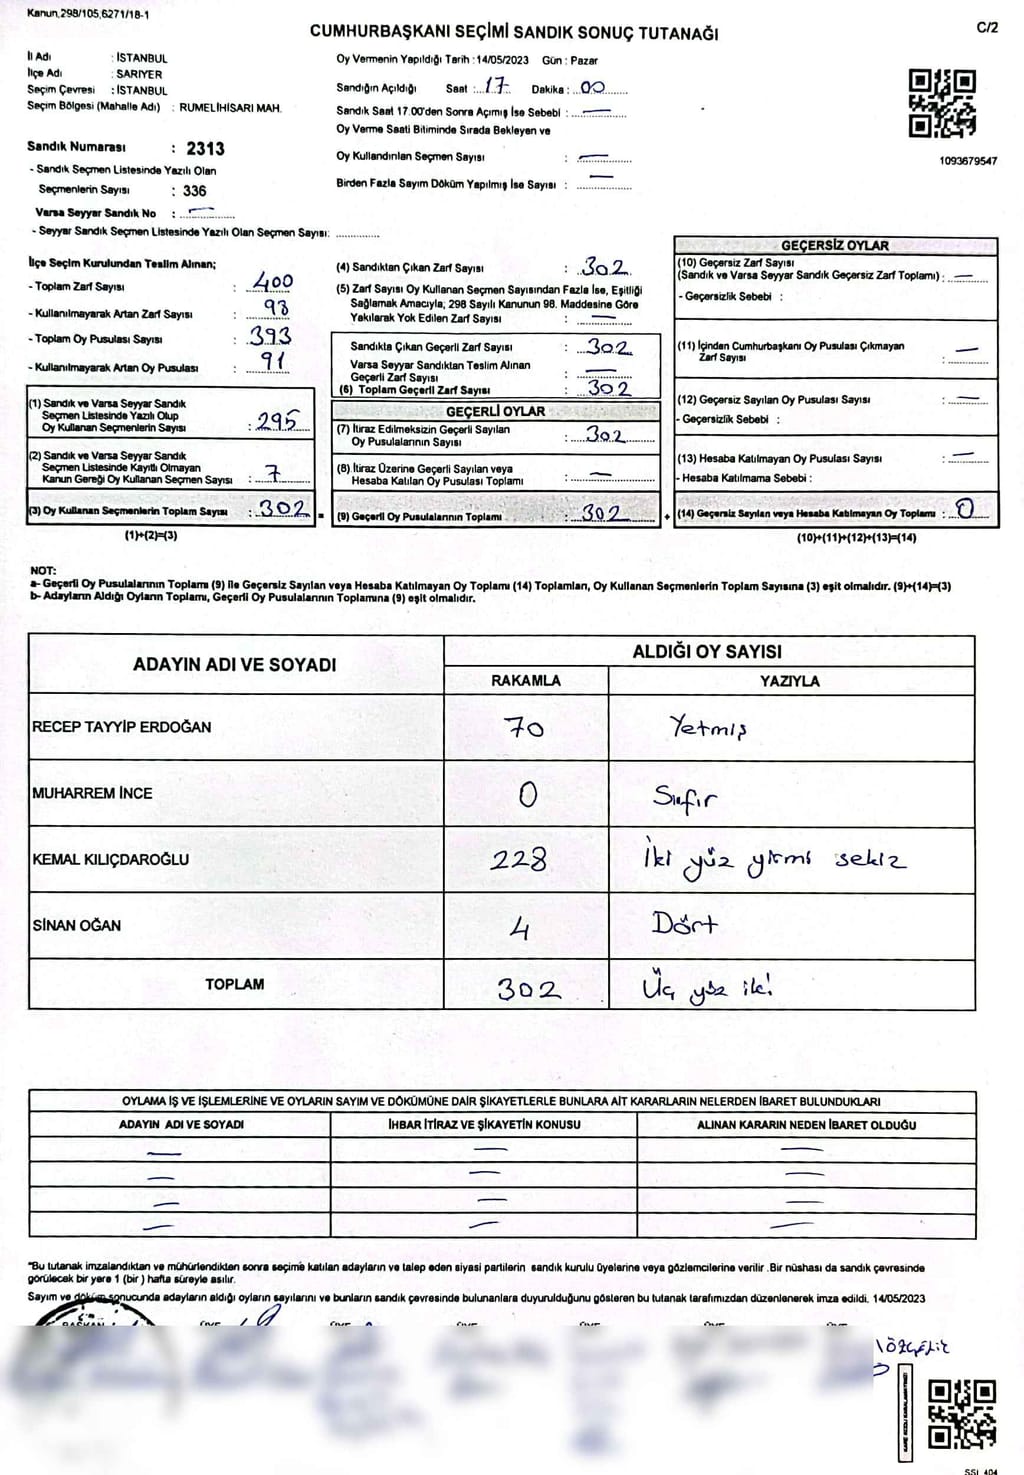 Kanun,298/105,6271/18-1
CUMHURBAŞKANI SEÇİMİ SANDIK SONUÇ TUTANAĞI
C/2
İl Adı : İSTANBUL
İlçe Adı : SARIYER
Seçim Çevresi : İSTANBUL
Seçim Bölgesi (Mahalle Adı) : RUMELİHİSARI MAH.
Sandık Numarası : 2313
- Sandık Seçmen Listesinde Yazılı Olan
Seçmenlerin Sayısı : 336
Varsa Seyyar Sandık No : —
- Seyyar Sandık Seçmen Listesinde Yazılı Olan Seçmen Sayısı:
Oy Vermenin Yapıldığı Tarih : 14/05/2023 Gün : Pazar
Sandığın Açıldığı Saat : 17 Dakika : 00
Sandık Saat 17.00'den Sonra Açımış İse Sebebi : —
Oy Verme Saati Bitiminde Sırada Bekleyen ve
Oy Kullandırılan Seçmen Sayısı : —
Birden Fazla Sayım Döküm Yapılmış İse Sayısı : —
1093679547
İlçe Seçim Kurulundan Teslim Alınan;
- Toplam Zarf Sayısı : 400
- Kullanılmayarak Artan Zarf Sayısı : 98
- Toplam Oy Pusulası Sayısı : 393
- Kullanılmayarak Artan Oy Pusulası : 91
(1) Sandık ve Varsa Seyyar Sandık
Seçmen Listesinde Yazılı Olup
Oy Kullanan Seçmenlerin Sayısı : 295
(2) Sandık ve Varsa Seyyar Sandık
Seçmen Listesinde Kayıtlı Olmayan
Kanun Gereği Oy Kullanan Seçmen Sayısı : 7
(3) Oy Kullanan Seçmenlerin Toplam Sayısı : 302 =
(1)+(2)=(3)
(4) Sandıktan Çıkan Zarf Sayısı : 302
(5) Zarf Sayısı Oy Kullanan Seçmen Sayısından Fazla İse, Eşitliği
Sağlamak Amacıyla; 298 Sayılı Kanunun 98. Maddesine Göre
Yakılarak Yok Edilen Zarf Sayısı : —
Sandıkta Çıkan Geçerli Zarf Sayısı : 302
Varsa Seyyar Sandıktan Teslim Alınan
Geçerli Zarf Sayısı : —
(6) Toplam Geçerli Zarf Sayısı : 302
GEÇERLİ OYLAR
(7) İtiraz Edilmeksizin Geçerli Sayılan
Oy Pusulalarının Sayısı : 302
(8) İtiraz Üzerine Geçerli Sayılan veya
Hesaba Katılan Oy Pusulası Toplamı : —
(9) Geçerli Oy Pusulalarının Toplamı : 302 +
GEÇERSİZ OYLAR
(10) Geçersiz Zarf Sayısı
(Sandık ve Varsa Seyyar Sandık Geçersiz Zarf Toplamı) : —
- Geçersizlik Sebebi :
(11) İçinden Cumhurbaşkanı Oy Pusulası Çıkmayan
Zarf Sayısı : —
(12) Geçersiz Sayılan Oy Pusulası Sayısı : —
- Geçersizlik Sebebi :
(13) Hesaba Katılmayan Oy Pusulası Sayısı : —
- Hesaba Katılmama Sebebi :
(14) Geçersiz Sayılan veya Hesaba Katılmayan Oy Toplamı : 0
(10)+(11)+(12)+(13)=(14)
NOT:
a- Geçerli Oy Pusulalarının Toplamı (9) ile Geçersiz Sayılan veya Hesaba Katılmayan Oy Toplamı (14) Toplamları, Oy Kullanan Seçmenlerin Toplam Sayısına (3) eşit olmalıdır. (9)+(14)=(3)
b- Adayların Aldığı Oyların Toplamı, Geçerli Oy Pusulalarının Toplamına (9) eşit olmalıdır.
ADAYIN ADI VE SOYADI
ALDIĞI OY SAYISI
RAKAMLA YAZIYLA
RECEP TAYYİP ERDOĞAN 70 Yetmiş
MUHARREM İNCE 0 Sıfır
KEMAL KILIÇDAROĞLU 228 İki yüz yirmi sekiz
SİNAN OĞAN 4 Dört
TOPLAM 302 Üç yüz iki
OYLAMA İŞ VE İŞLEMLERİNE VE OYLARIN SAYIM VE DÖKÜMÜNE DAİR ŞİKAYETLERLE BUNLARA AİT KARARLARIN NELERDEN İBARET BULUNDUKLARI
ADAYIN ADI VE SOYADI İHBAR İTİRAZ VE ŞİKAYETİN KONUSU ALINAN KARARIN NEDEN İBARET OLDUĞU
— — —
— — —
— — —
— — —
*Bu tutanak imzalandıktan ve mühürlendikten sonra seçime katılan adayların ve talep eden siyasi partilerin sandık kurulu üyelerine veya gözlemcilerine verilir .Bir nüshası da sandık çevresinde
görülecek bir yere 1 (bir ) hafta süreyle asılır.
Sayım ve döküm sonucunda adayların aldığı oyların sayılarını ve bunların sandık çevresinde bulunanlara duyurulduğunu gösteren bu tutanak tarafımızdan düzenlenerek imza edildi. 14/05/2023
BAŞKAN
KARE KODU KARALAMAYINIZ